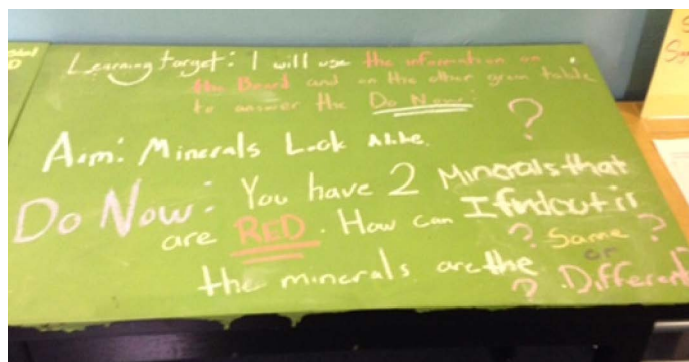 Learning target: I will use the information on
the Board and on the other green table
to answer the Do Now:
?
Aim: Minerals Look Alike.
Do Now: You have 2 Minerals that
are RED. How can I find out if
? Same ?
or
the minerals are the
? Different